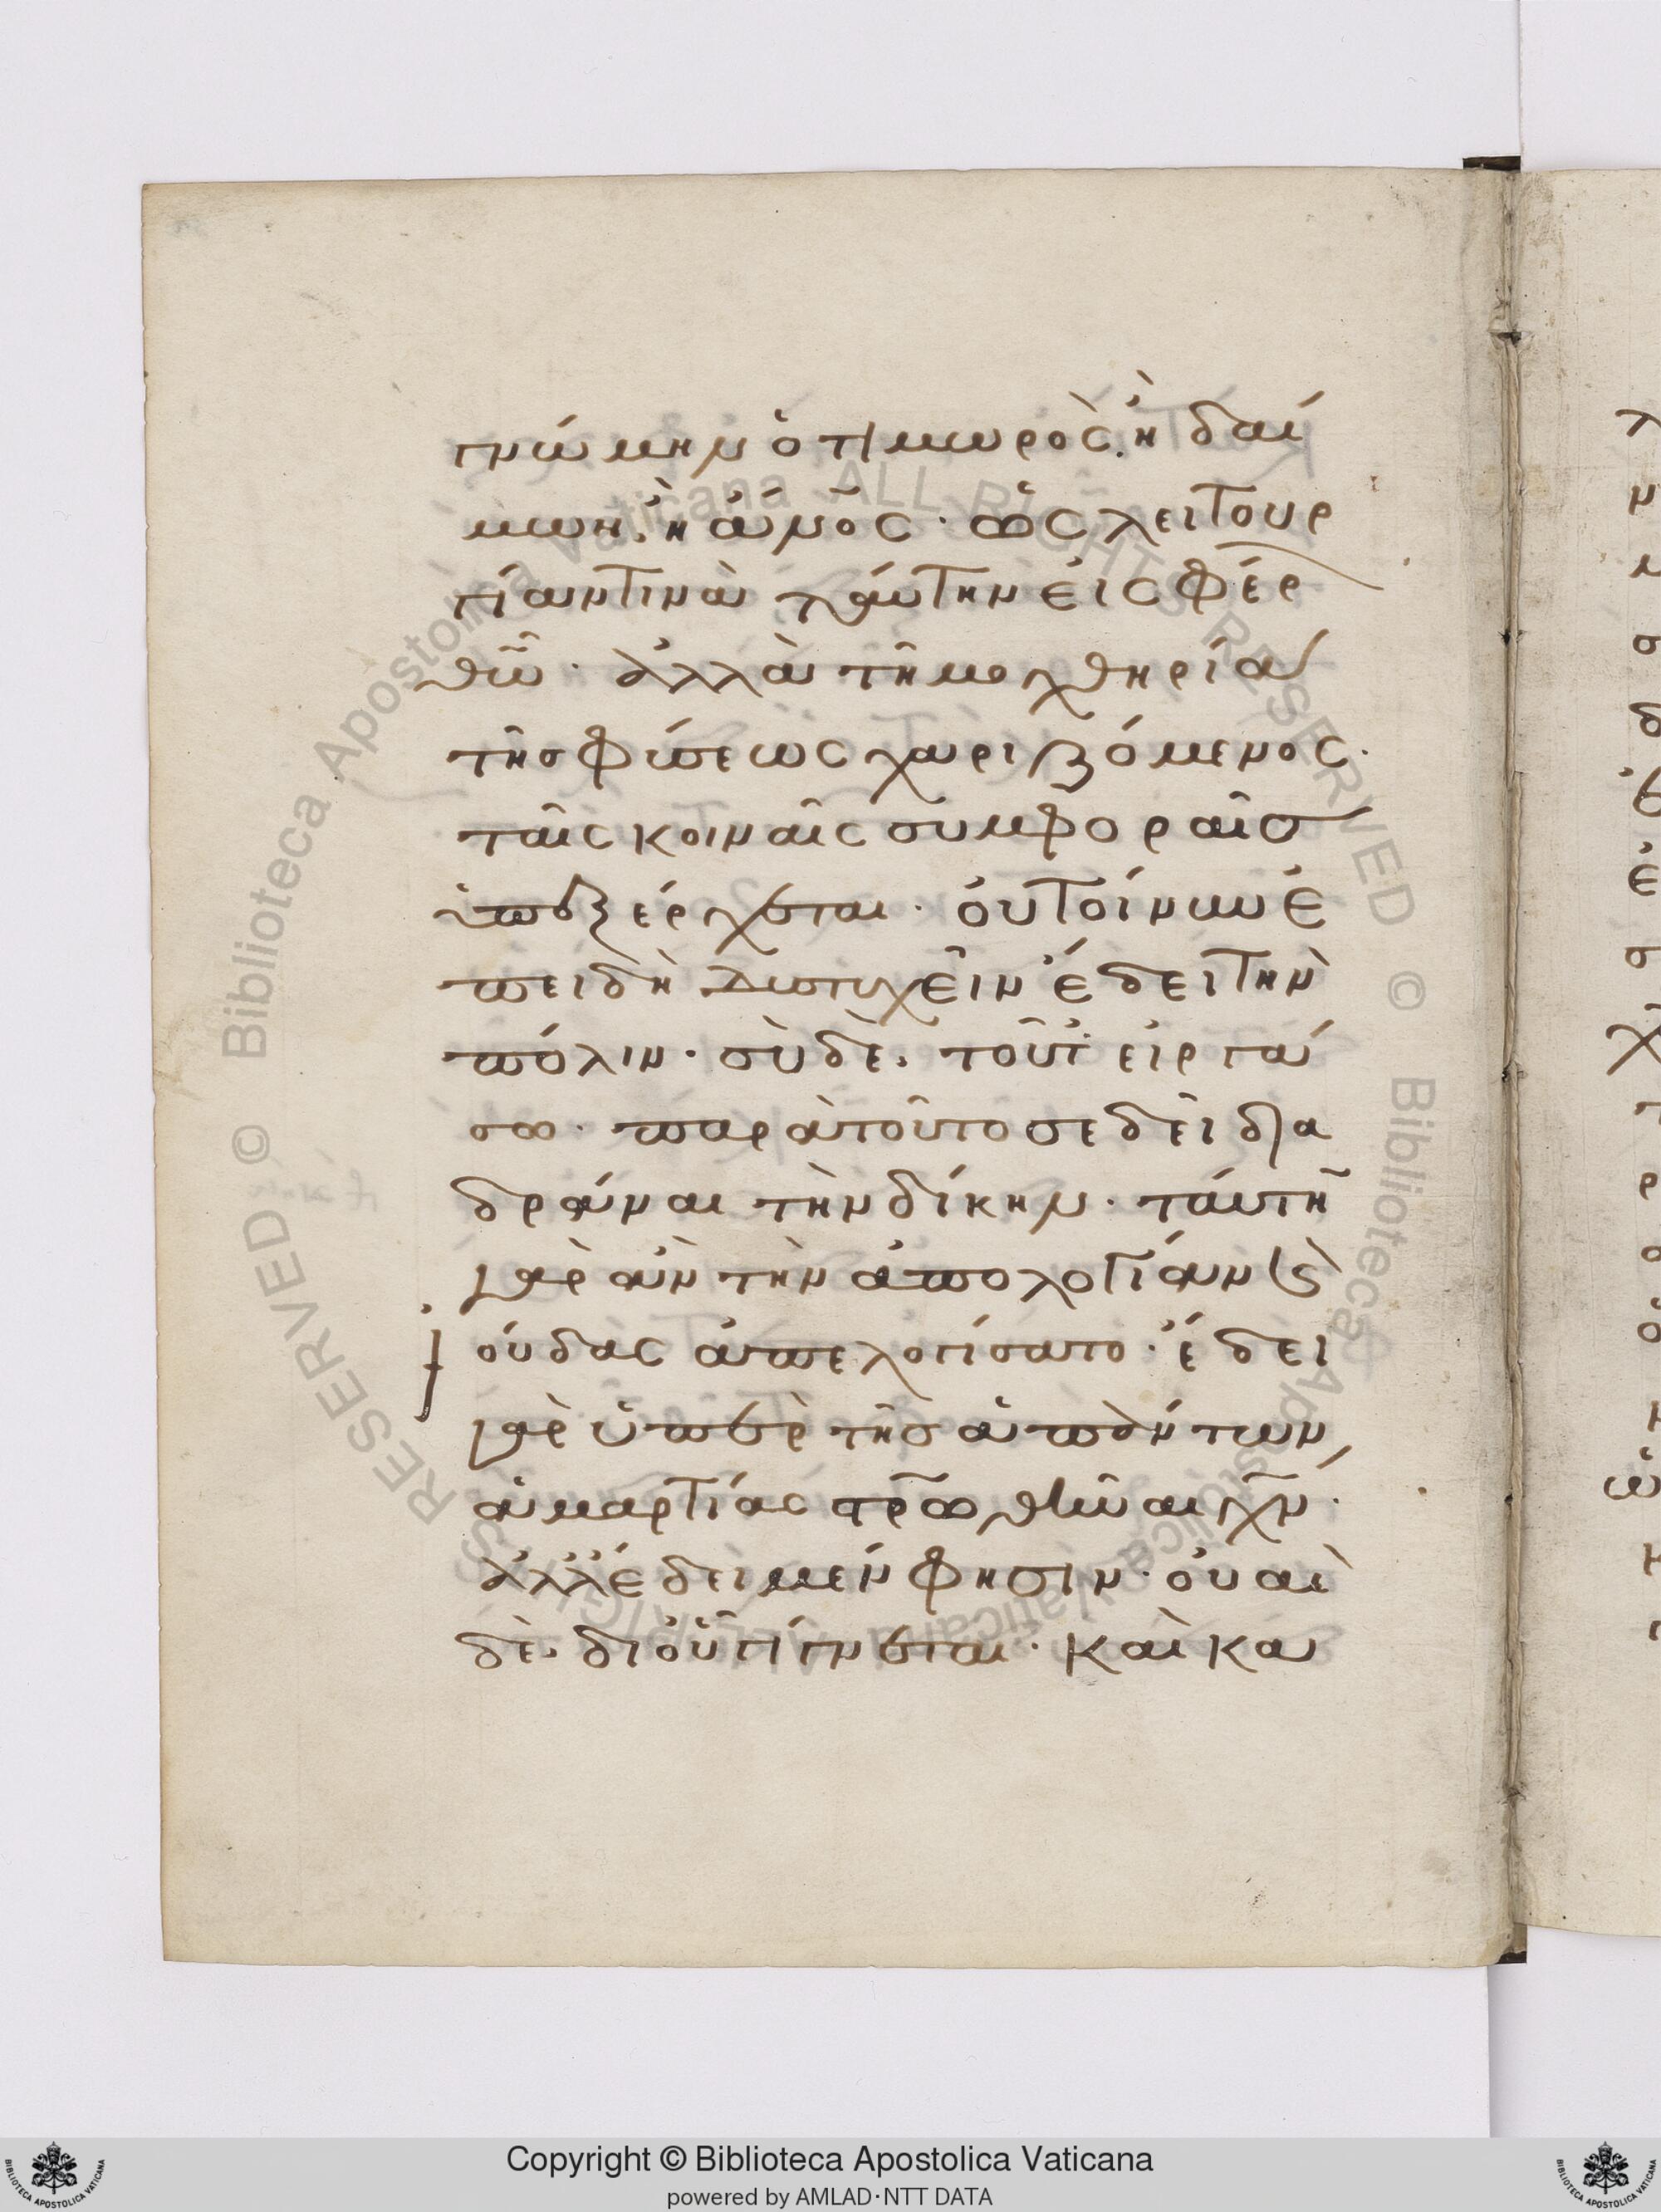 γνώμην ὁ τιμωρὸς. ἢ δαί
μων. ἢ ἄν̅ο̅ς̅· ὡς λειτουρ
γίαν τινὰ ταύτην εἰσφέρ
θῶ· ἀλλὰ τῆ μοχθηρία
τῆς φύσεως χαριζόμενος·
ταῖς κοιναῖς συμφοραῖσ
ὑπεξέρχεται· οὐ τοίνυν ἐ
πειδὴ δυστυχεῖν ἔδει τὴν
πόλιν· σὺ δὲ. τοῦτ' εἰργά
σω· παρὰ τοῦτο σε δεῖ δια
δρᾶναι τὴν δίκην· ταύτη
γὰρ ἂν τὴν ἀπολογίαν καὶ
ούδας ἀπελογίσατο· ἔδει
γὰρ ὑπὲρ τῆσ ἁπάντων
ἁμαρτίας στρ̅ωθῆναι χν̅·
ἀλλ' ἔδει μέν φησιν· οὐαὶ
δὲ. δι' οὗ γίγνεται· καὶ κα
Copyright © Biblioteca Apostolica Vaticana
powered by AMLAD·NTT DATA